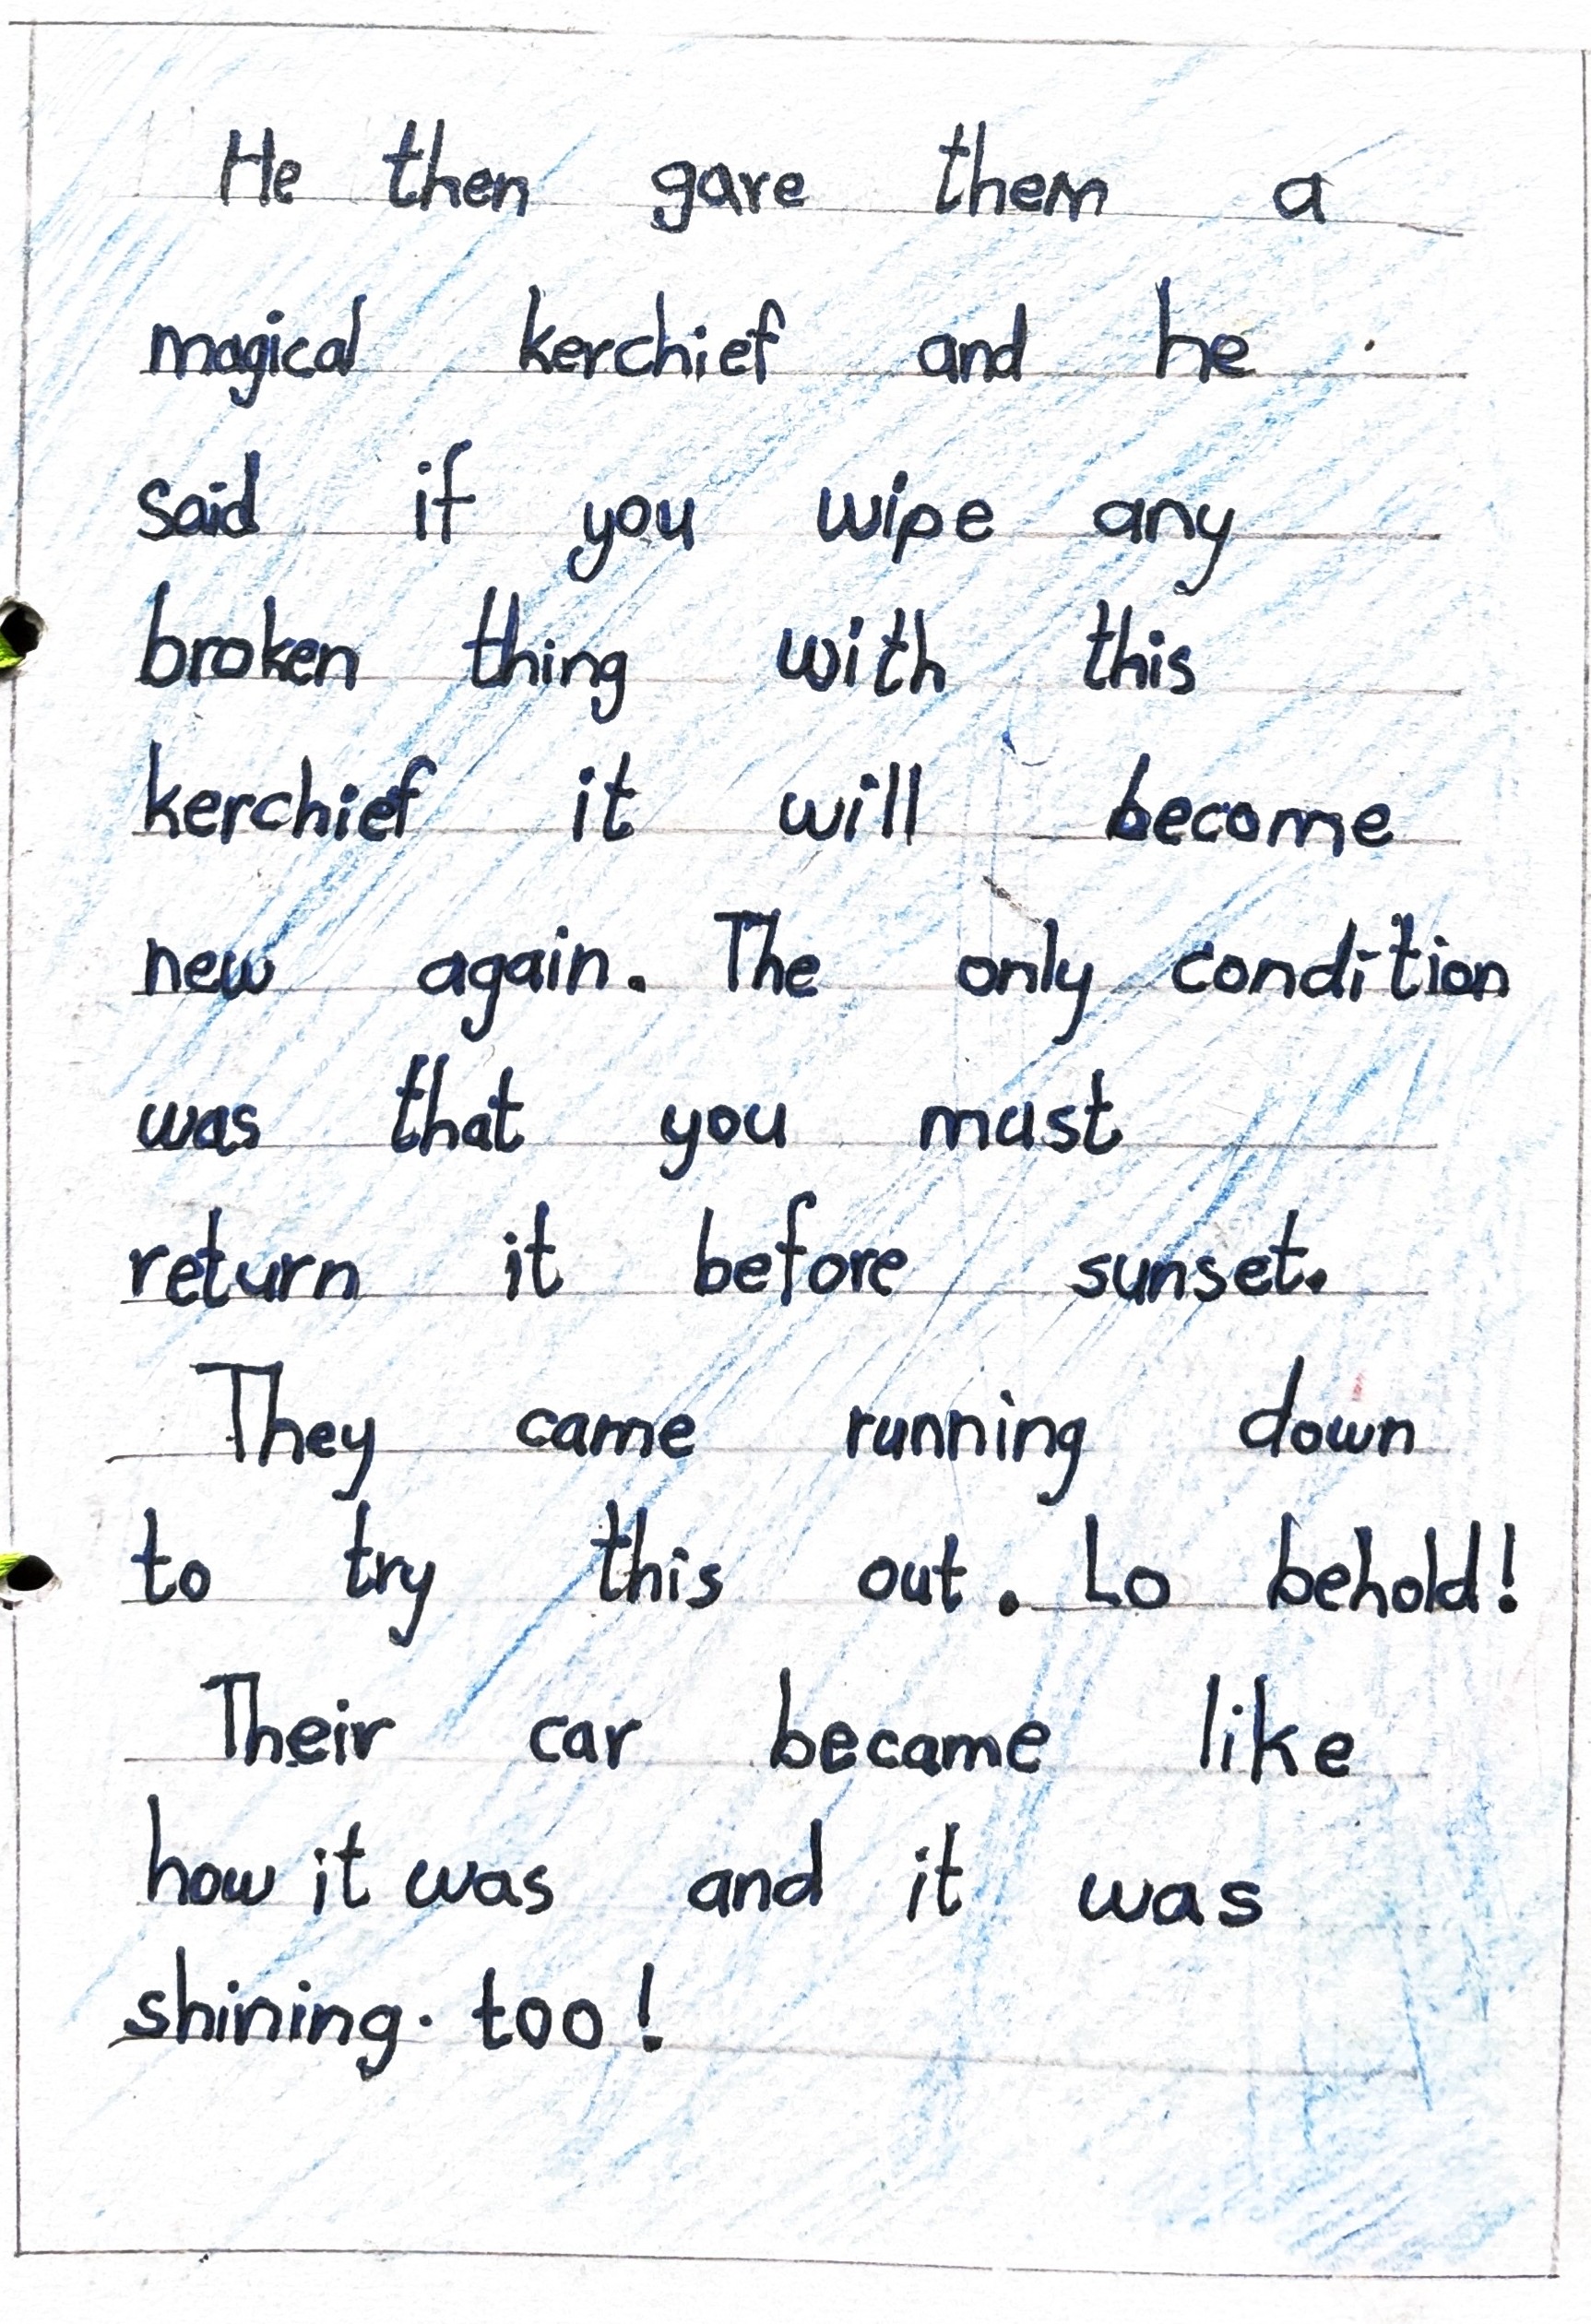 He then gave them a
magical kerchief and he
said if you wipe any
broken thing with this
kerchief it will become
new again. The only condition
was that you must
return it before sunset.
They came running down
to try this out. Lo behold!
Their car became like
how it was and it was
shining. too!